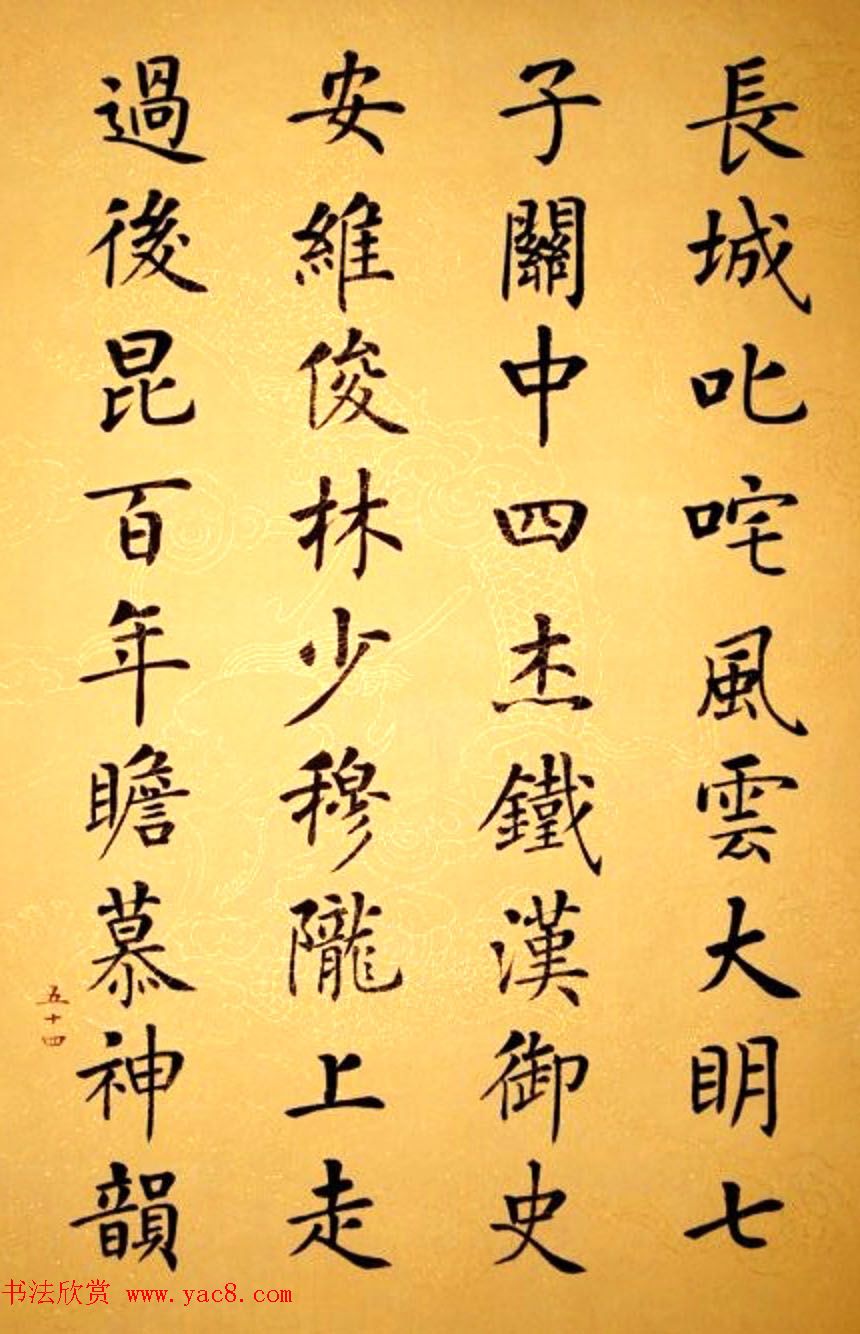 長城叱咤風雲大明七
子關中四杰鐵漢御史
安維俊林少穆隴上走
過後昆百年瞻慕神韻
五十四
书法欣赏 www.yac8.com